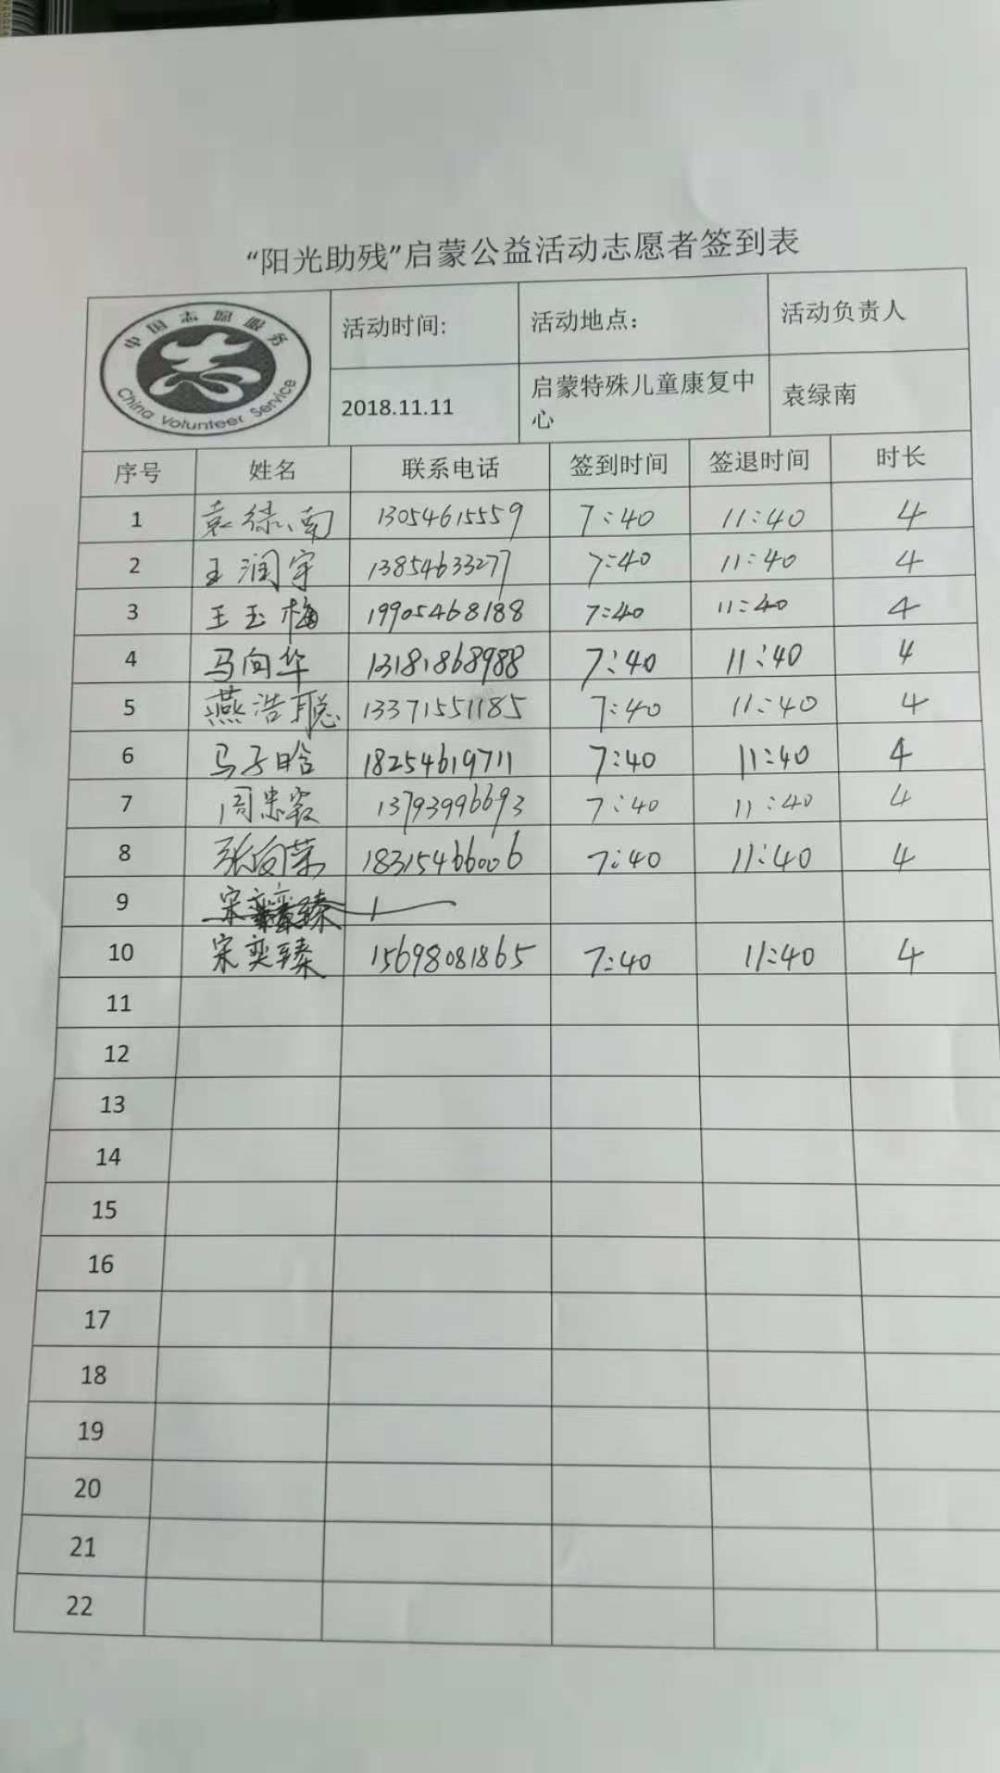 “阳光助残”启蒙公益活动志愿者签到表
中国志愿服务
China Volunteer Service
活动时间: 活动地点： 活动负责人
2018.11.11 启蒙特殊儿童康复中心 袁绿南
序号 姓名 联系电话 签到时间 签退时间 时长
1 袁绿南 13054615559 7:40 11:40 4
2 王润宇 13854633277 7:40 11:40 4
3 王玉梅 19905468188 7:40 11:40 4
4 马向华 13181868988 7:40 11:40 4
5 燕浩聪 13371551185 7:40 11:40 4
6 马子晗 18254619711 7:40 11:40 4
7 周忠 13793996693 7:40 11:40 4
8 张向荣 18315466006 7:40 11:40 4
9 宋 臻
10 宋奕臻 15698081865 7:40 11:40 4
11
12
13
14
15
16
17
18
19
20
21
22